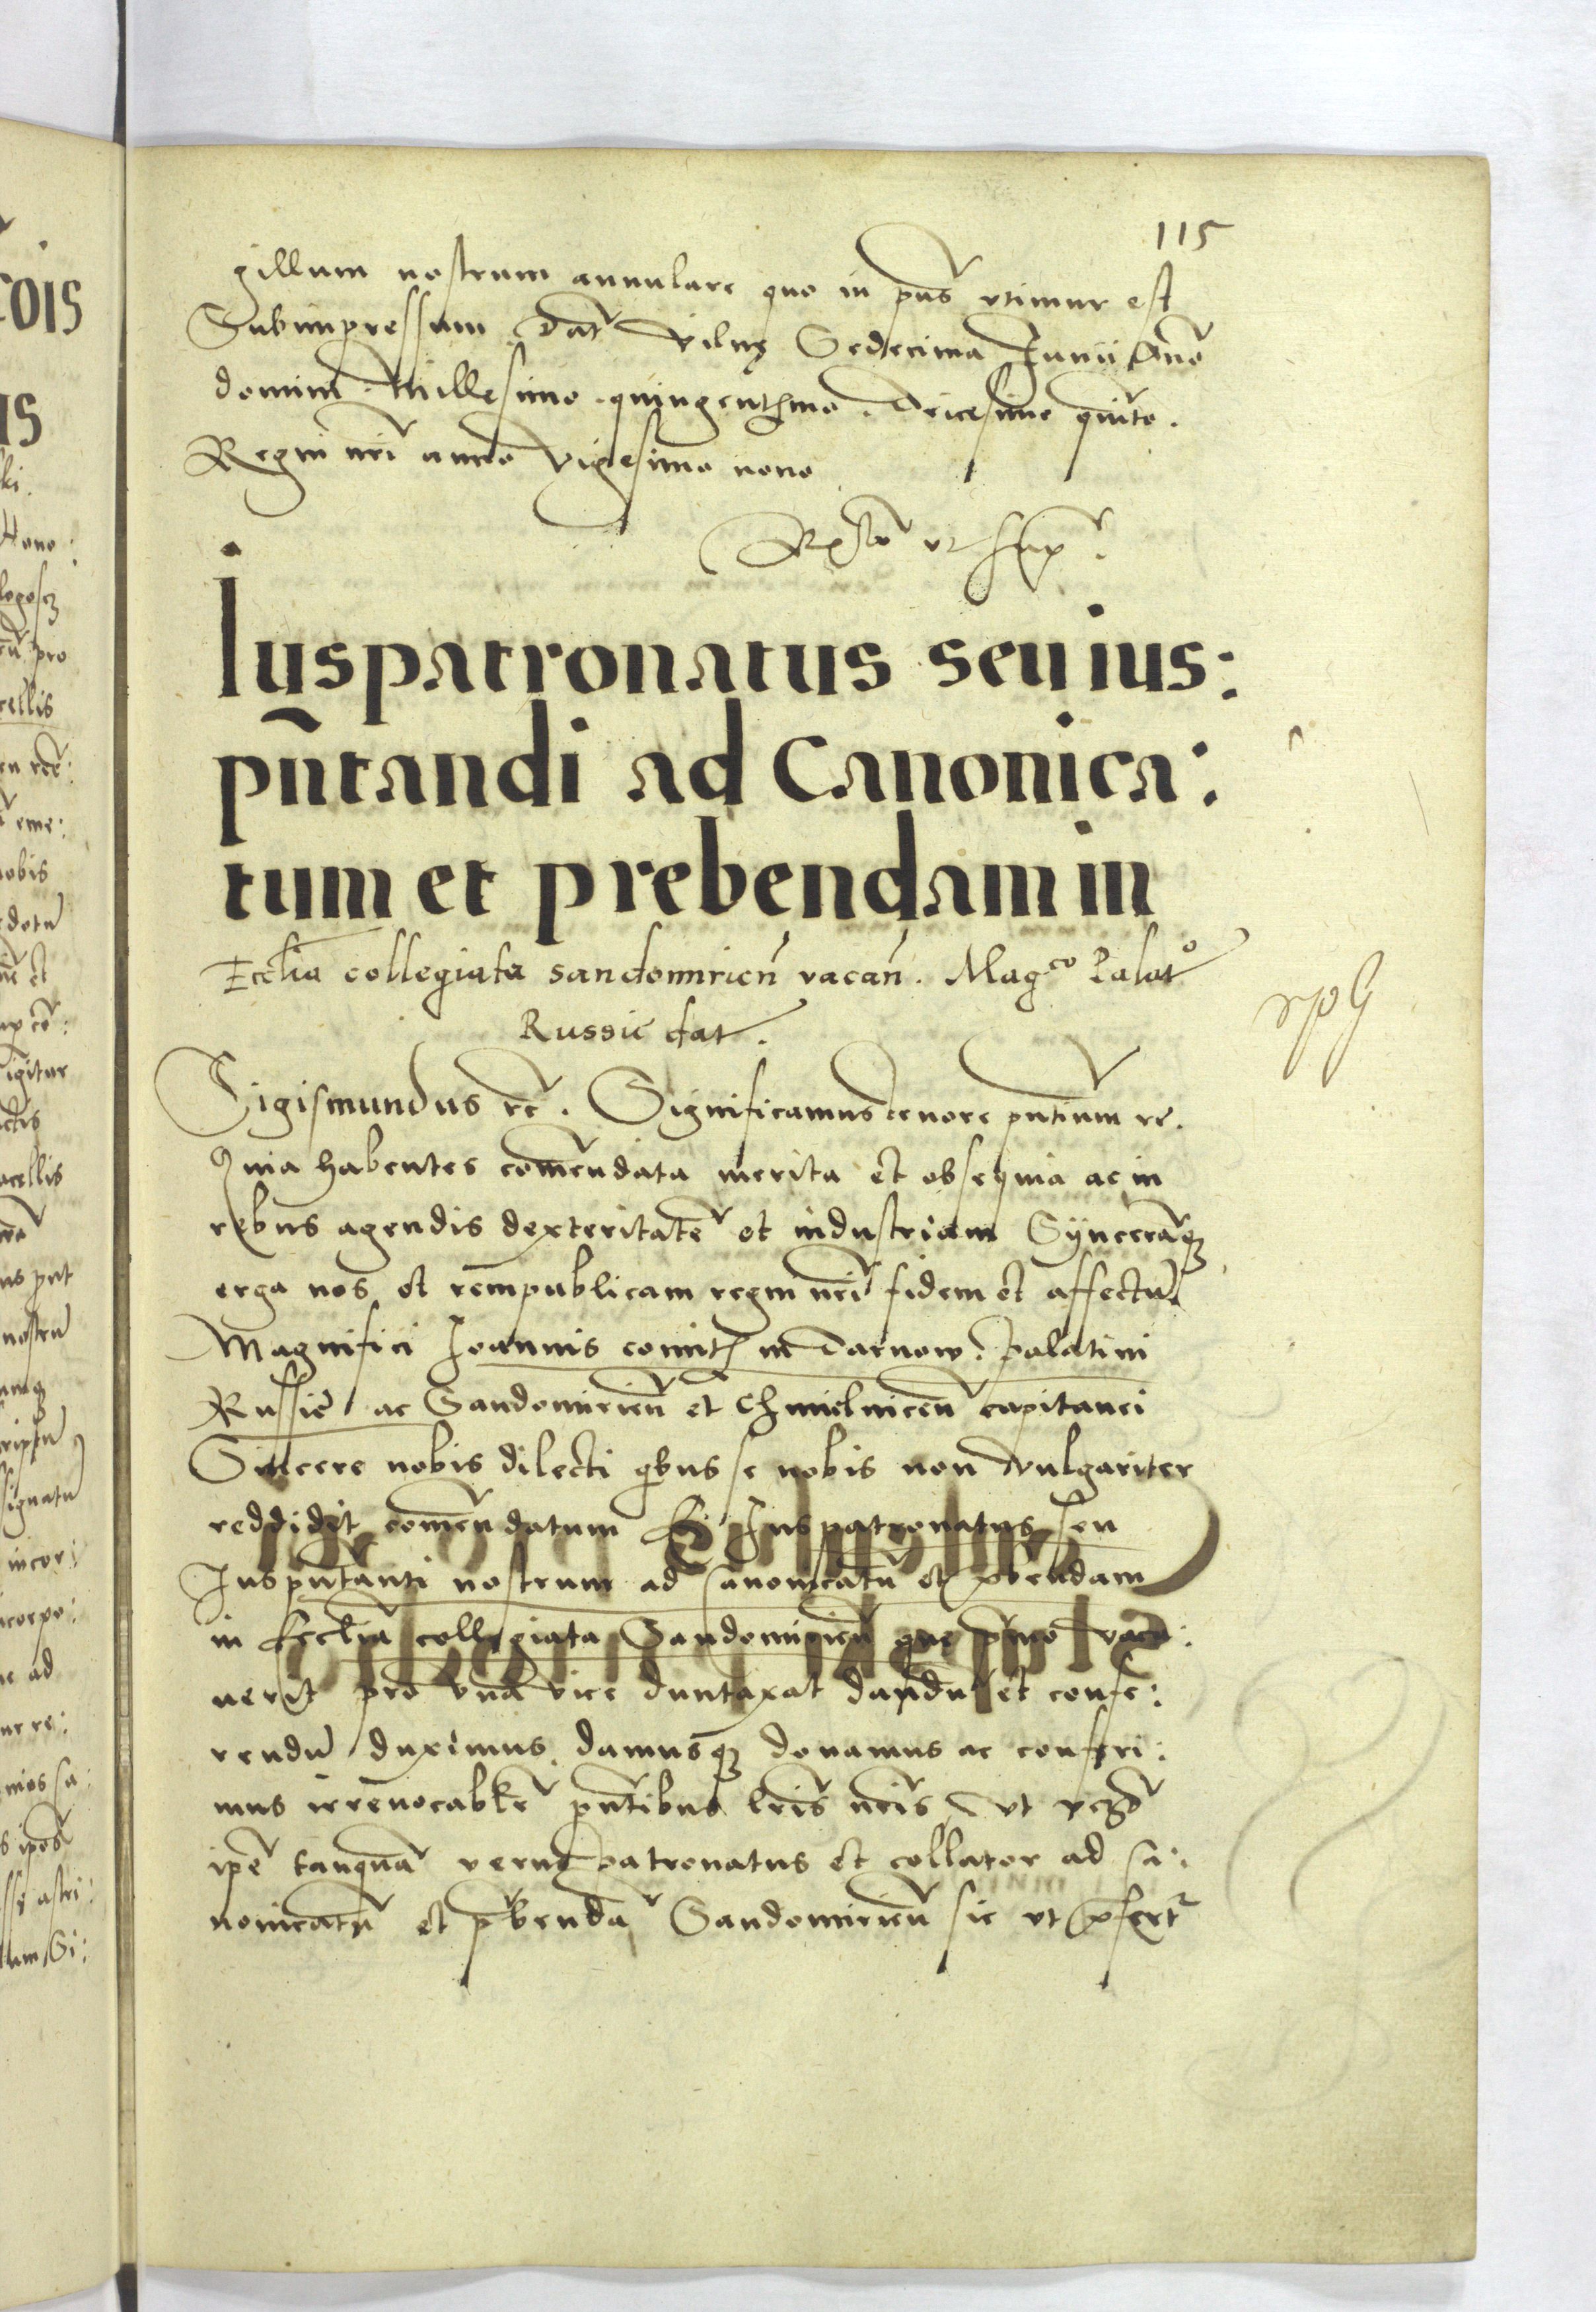 115
gillum nostrum annulare quo in pn̄s vtimur est
Subimpressum Dat̄ Vilnę Sedecima Junii Año
domini Millesimo quingentesimo Tricesimo quīto.
Regni nr̄i anno Vigesimo nono
ut sup̄
Iuspatronatus seu ius:
pn̄tandi ad Canonica:
tum et prebendam in
Eccl̄ia collegiata sandomirien̄ vacan̄. Mag^co Palat^o
Russię dat.
Sigismundus rc̄. Significamus tenore pn̄tium rc̄.
Quia habentes com̄endata merita et obsequia ac in
rebus agendis dexteritatē et industriam Synceramq̄
erga nos et rempublicam regni nr̄i fidem et affectū
Magnifici Joannis comit̄ in Tarnow Palatini
Russię ac Sandomirien̄ et Chmielnicen̄ capitanei
Sincere nobis dilecti q̄bus se nobis non vulgariter
reddidit com̄endatum Ei Juspatronatus seu
Juspn̄tandi nostrum ad Canonicatū et p̄bendam
in Eccl̄ia collegiata Sandomirien̄ que p̄mo vaca:
uerit pro vna vice duntaxat dandū et confe:
rendū duximus damusq̄ donamus ac conferi:
mus irreuocabl̄r pn̄tibus lr̄is nr̄is Vt
ip̄e tanquā verus patronatus et collator ad Ca:
nonicatū et p̄bendā Sandomirien̄ sic ut p̄fert̄